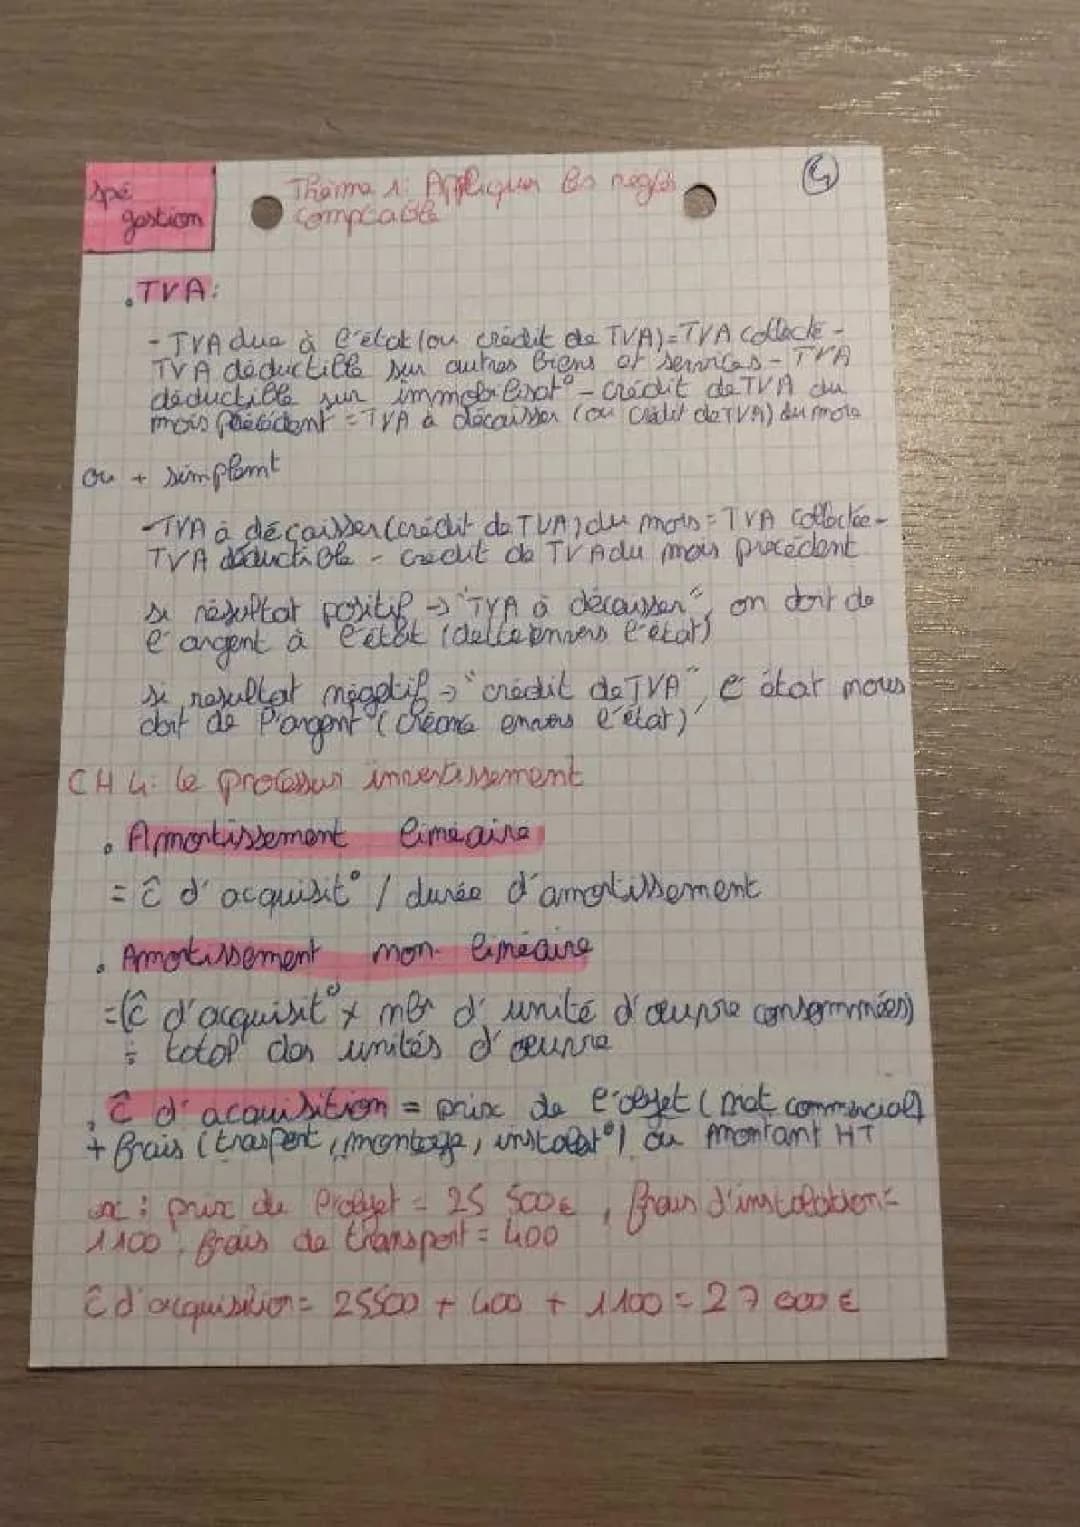 Spé
gestion
Thème 1: Appliquer les règles
comptable
• TVA:
- TVA due à l'état (ou crédit de TVA) = TVA collecte -
TVA déductible sur autres biens et services - TVA
déductible sur immobilisat° - crédit de TVA du
mois précédent = TVA à décaisser (ou crédit de TVA) du mois
ou + simplemt
- TVA à décaisser (crédit de TVA) du mois = TVA collectée -
TVA déductible - crédit de TVA du mois précédent
si résultat positif → "TVA à décaisser", on doit de
l'argent à l'état (dette envers l'état)
si resultat négatif → "crédit de TVA", l'état nous
doit de l'argent (créance envers l'état)
CH 4: le processus investissement
• Amortissement linéaire
= C d'acquisit° / durée d'amortissement
• Amortissement non linéaire
= (C d'acquisit° x nbr d'unité d'œuvre consommées)
÷ total des unités d'œuvre
• C d'acquisition = prix de l'objet (net commercial)
+ frais (trasport, montage, installat°) ou montant HT
ex : prix de l'objet = 25 500€, frais d'installation =
1100, frais de transport = 400
C d'acquisition = 25500 + 400 + 1100 = 27 000 €